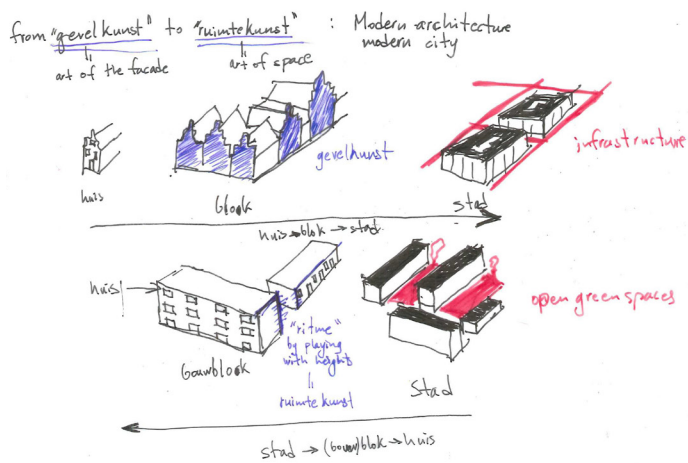 from "gevelkunst" to "ruimtekunst" : Modern architecture
modern city
art of the facade
art of space
gevelkunst
infrastructure
huis
blok
stad
huis → blok → stad
huis
"ritme"
by playing
with heights
ruimtekunst
bouwblok
open green spaces
stad
stad → (bouw)blok → huis